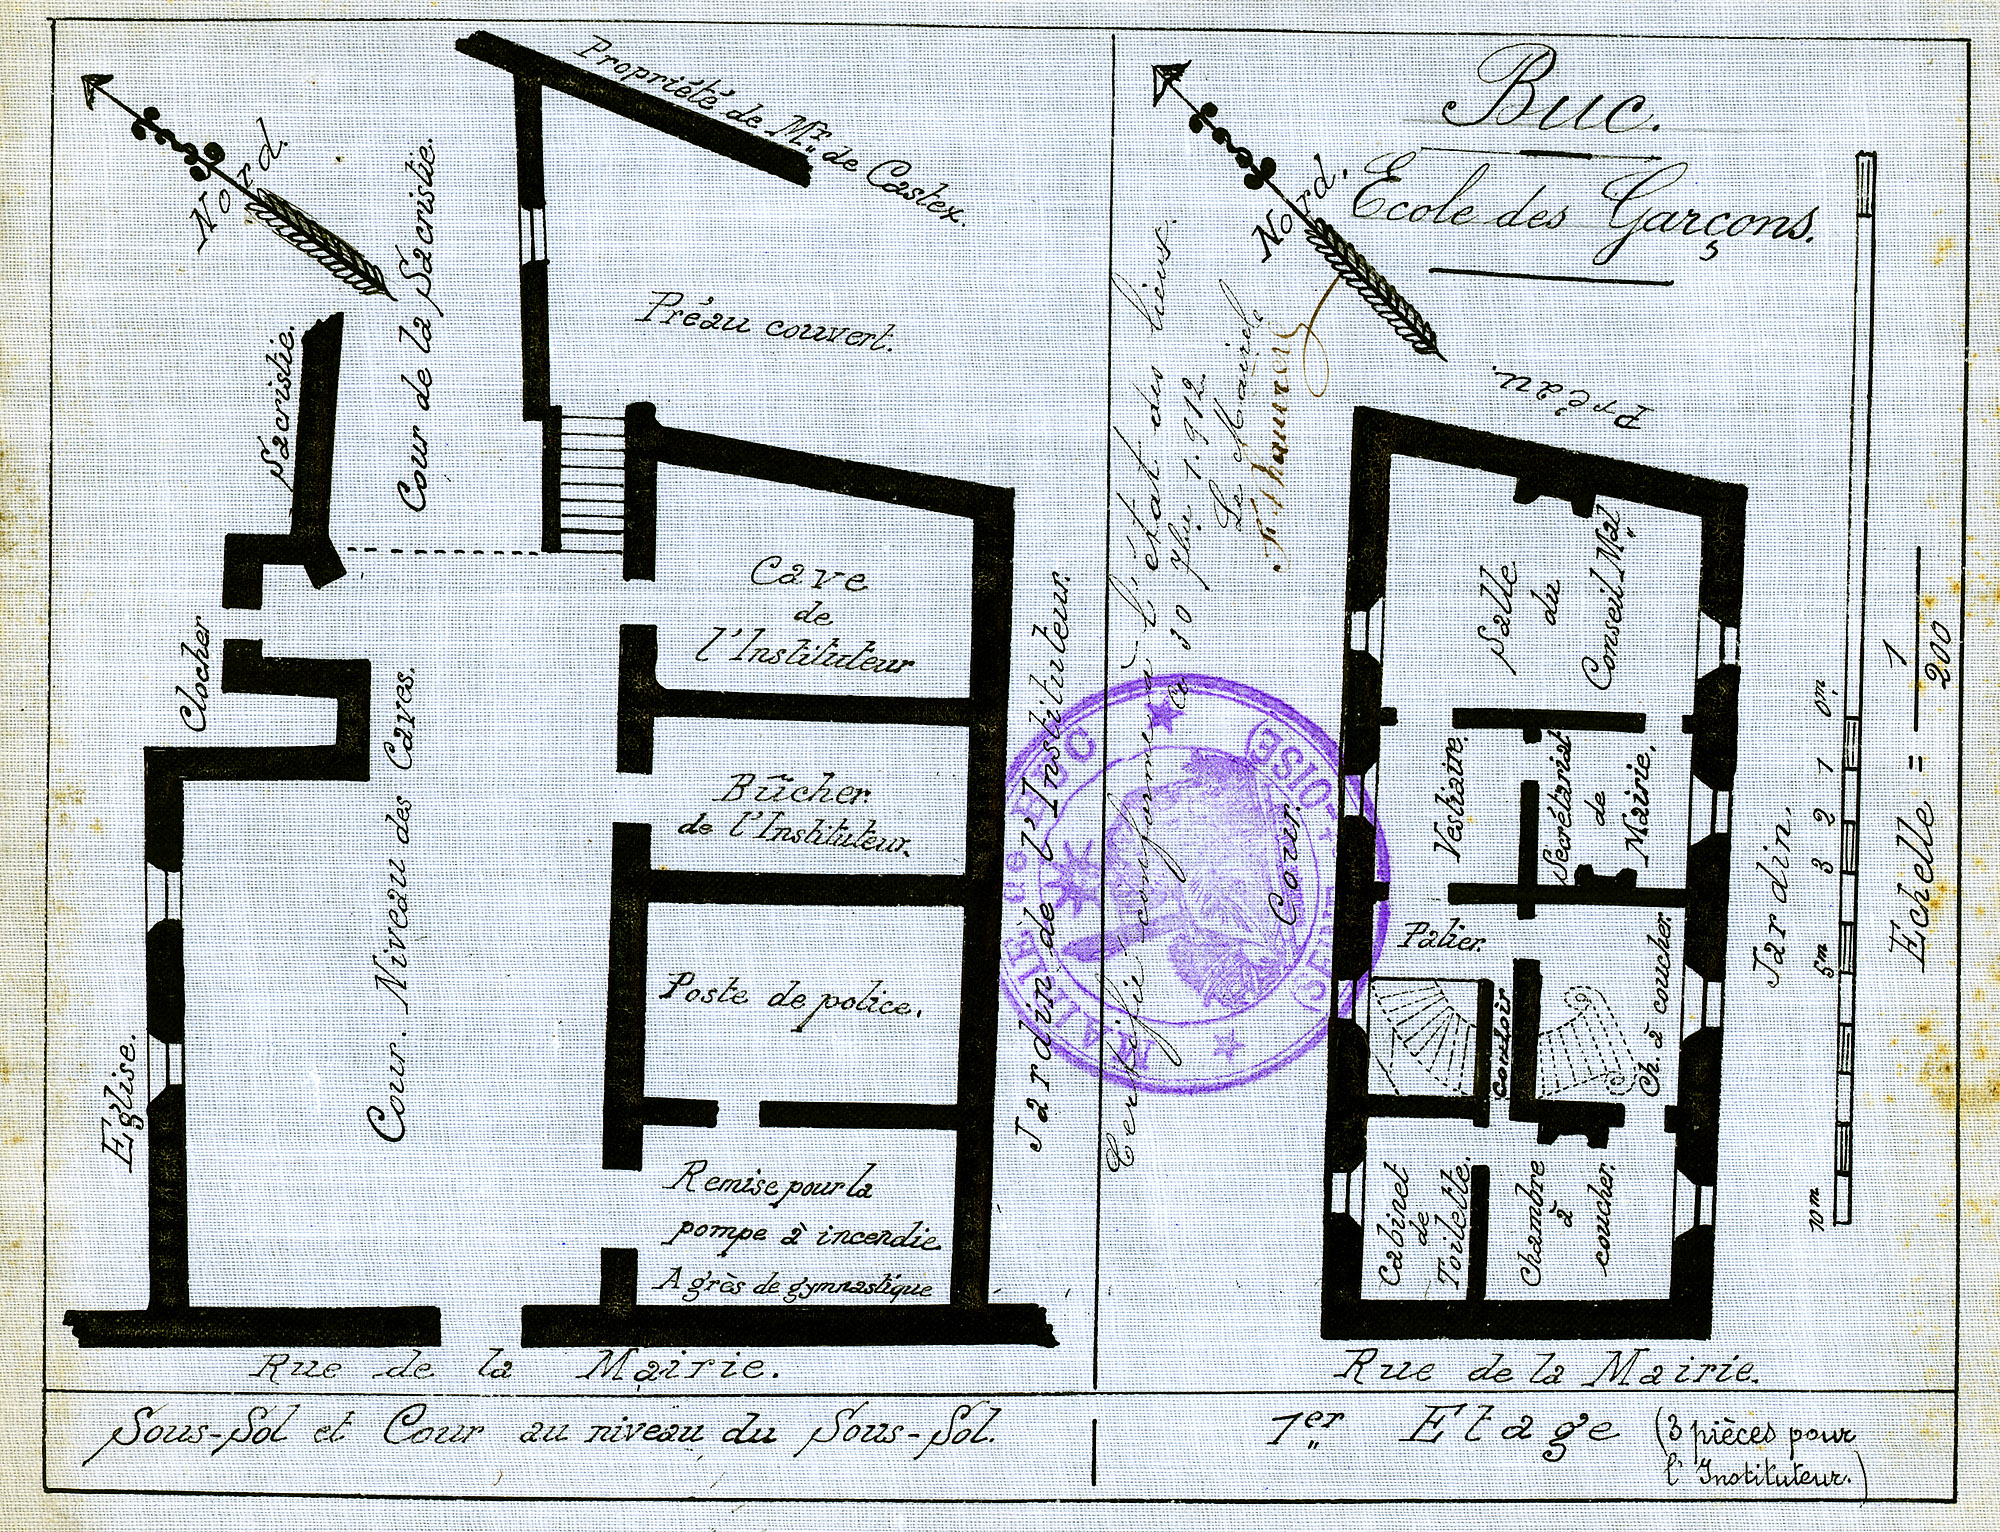 Nord.
Cour de la Sacristie.
Propriété de Mr. de Castex.
Préau couvert.
Sacristie.
Clocher
Cour. Niveau des Caves.
Eglise.
Cave
de
l'Instituteur
Bûcher
de l'Instituteur.
Poste de police.
Remise pour la
pompe à incendie.
Agrès de gymnastique
Jardin de l'Instituteur.
Rue de la Mairie.
Sous-Sol et Cour au niveau du Sous-Sol.
Certifié conforme à l'état des lieux.
Ce 30 7bre 1912.
Le Maire
MAIRIE de BUC
(SEINE-&-OISE)
Nord.
Buc.
Ecole des Garçons.
Préau.
Salle
du
Conseil Mal
Vestiaire.
Secrétariat
de
Mairie.
Cour.
Palier.
Couloir
Ch. à coucher.
Cabinet
de
Toilette.
Chambre
à
coucher.
Jardin.
0m. 1 2 3 5m 10m
Echelle = 1/200
Rue de la Mairie.
1er Etage (3 pièces pour
l'Instituteur.)